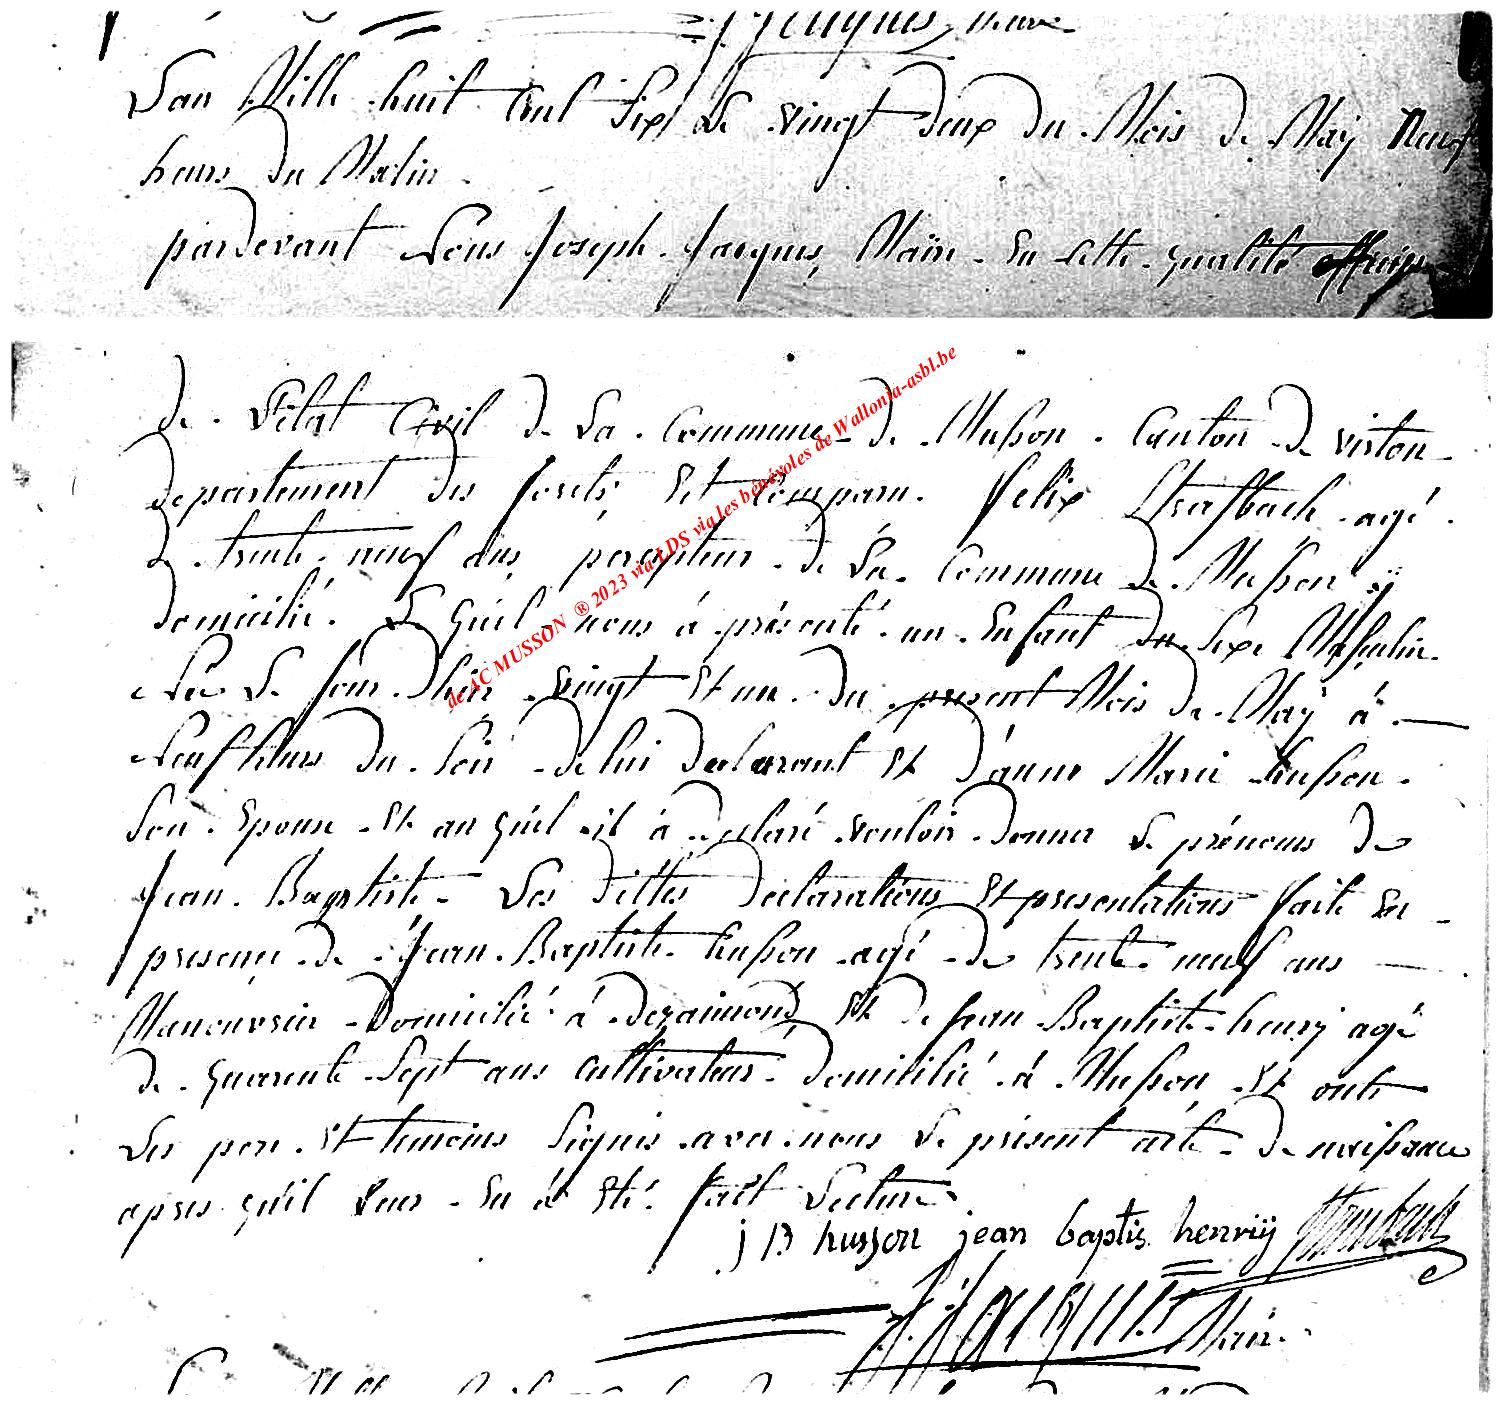 J Jacques, Maire
L'an Mille huit Cent Six Le vingt deux du Mois de Maÿ Neuf
heurs du Matin
pardevant Nous Joseph Jacques, Maire En Cette qualité officier
de L'Etat Civil de La Commune de Musson Canton de virton
departement des forets, Est Comparu felix Strasbach agé
De trente neuf ans, percepteur de La Commune de Musson y
domicilié Le quel nous à présenté un Enfant du Sexe Masculin
Née Le Jour d'hier vingt Et un du present Mois de Maÿ à
Neuf heurs du Soir de lui declarant Et d'anne Marie husson
Son Epouse Et au quel il à declaré vouloir donner Le prénoms de
Jean Baptiste Les dittes declarations Et presentations faite En
presence de Jean Baptiste husson agé de trente neuf ans
Manouvrier Domicilié à Bezaimond, Et de Jean Baptiste henrÿ agé
de quarente Sept ans cultivateur domicilié à Musson Et onts
Les pere Et temoins Signés avec nous Le présent acte de naissance
apres qu'il Leur En à Eté fait Lecture
j B husson jean baptis henriÿ Strasbach
J. Jacques Maire
de AC MUSSON ® 2023 via LDS via les bénévoles de Wallonia-asbl.be